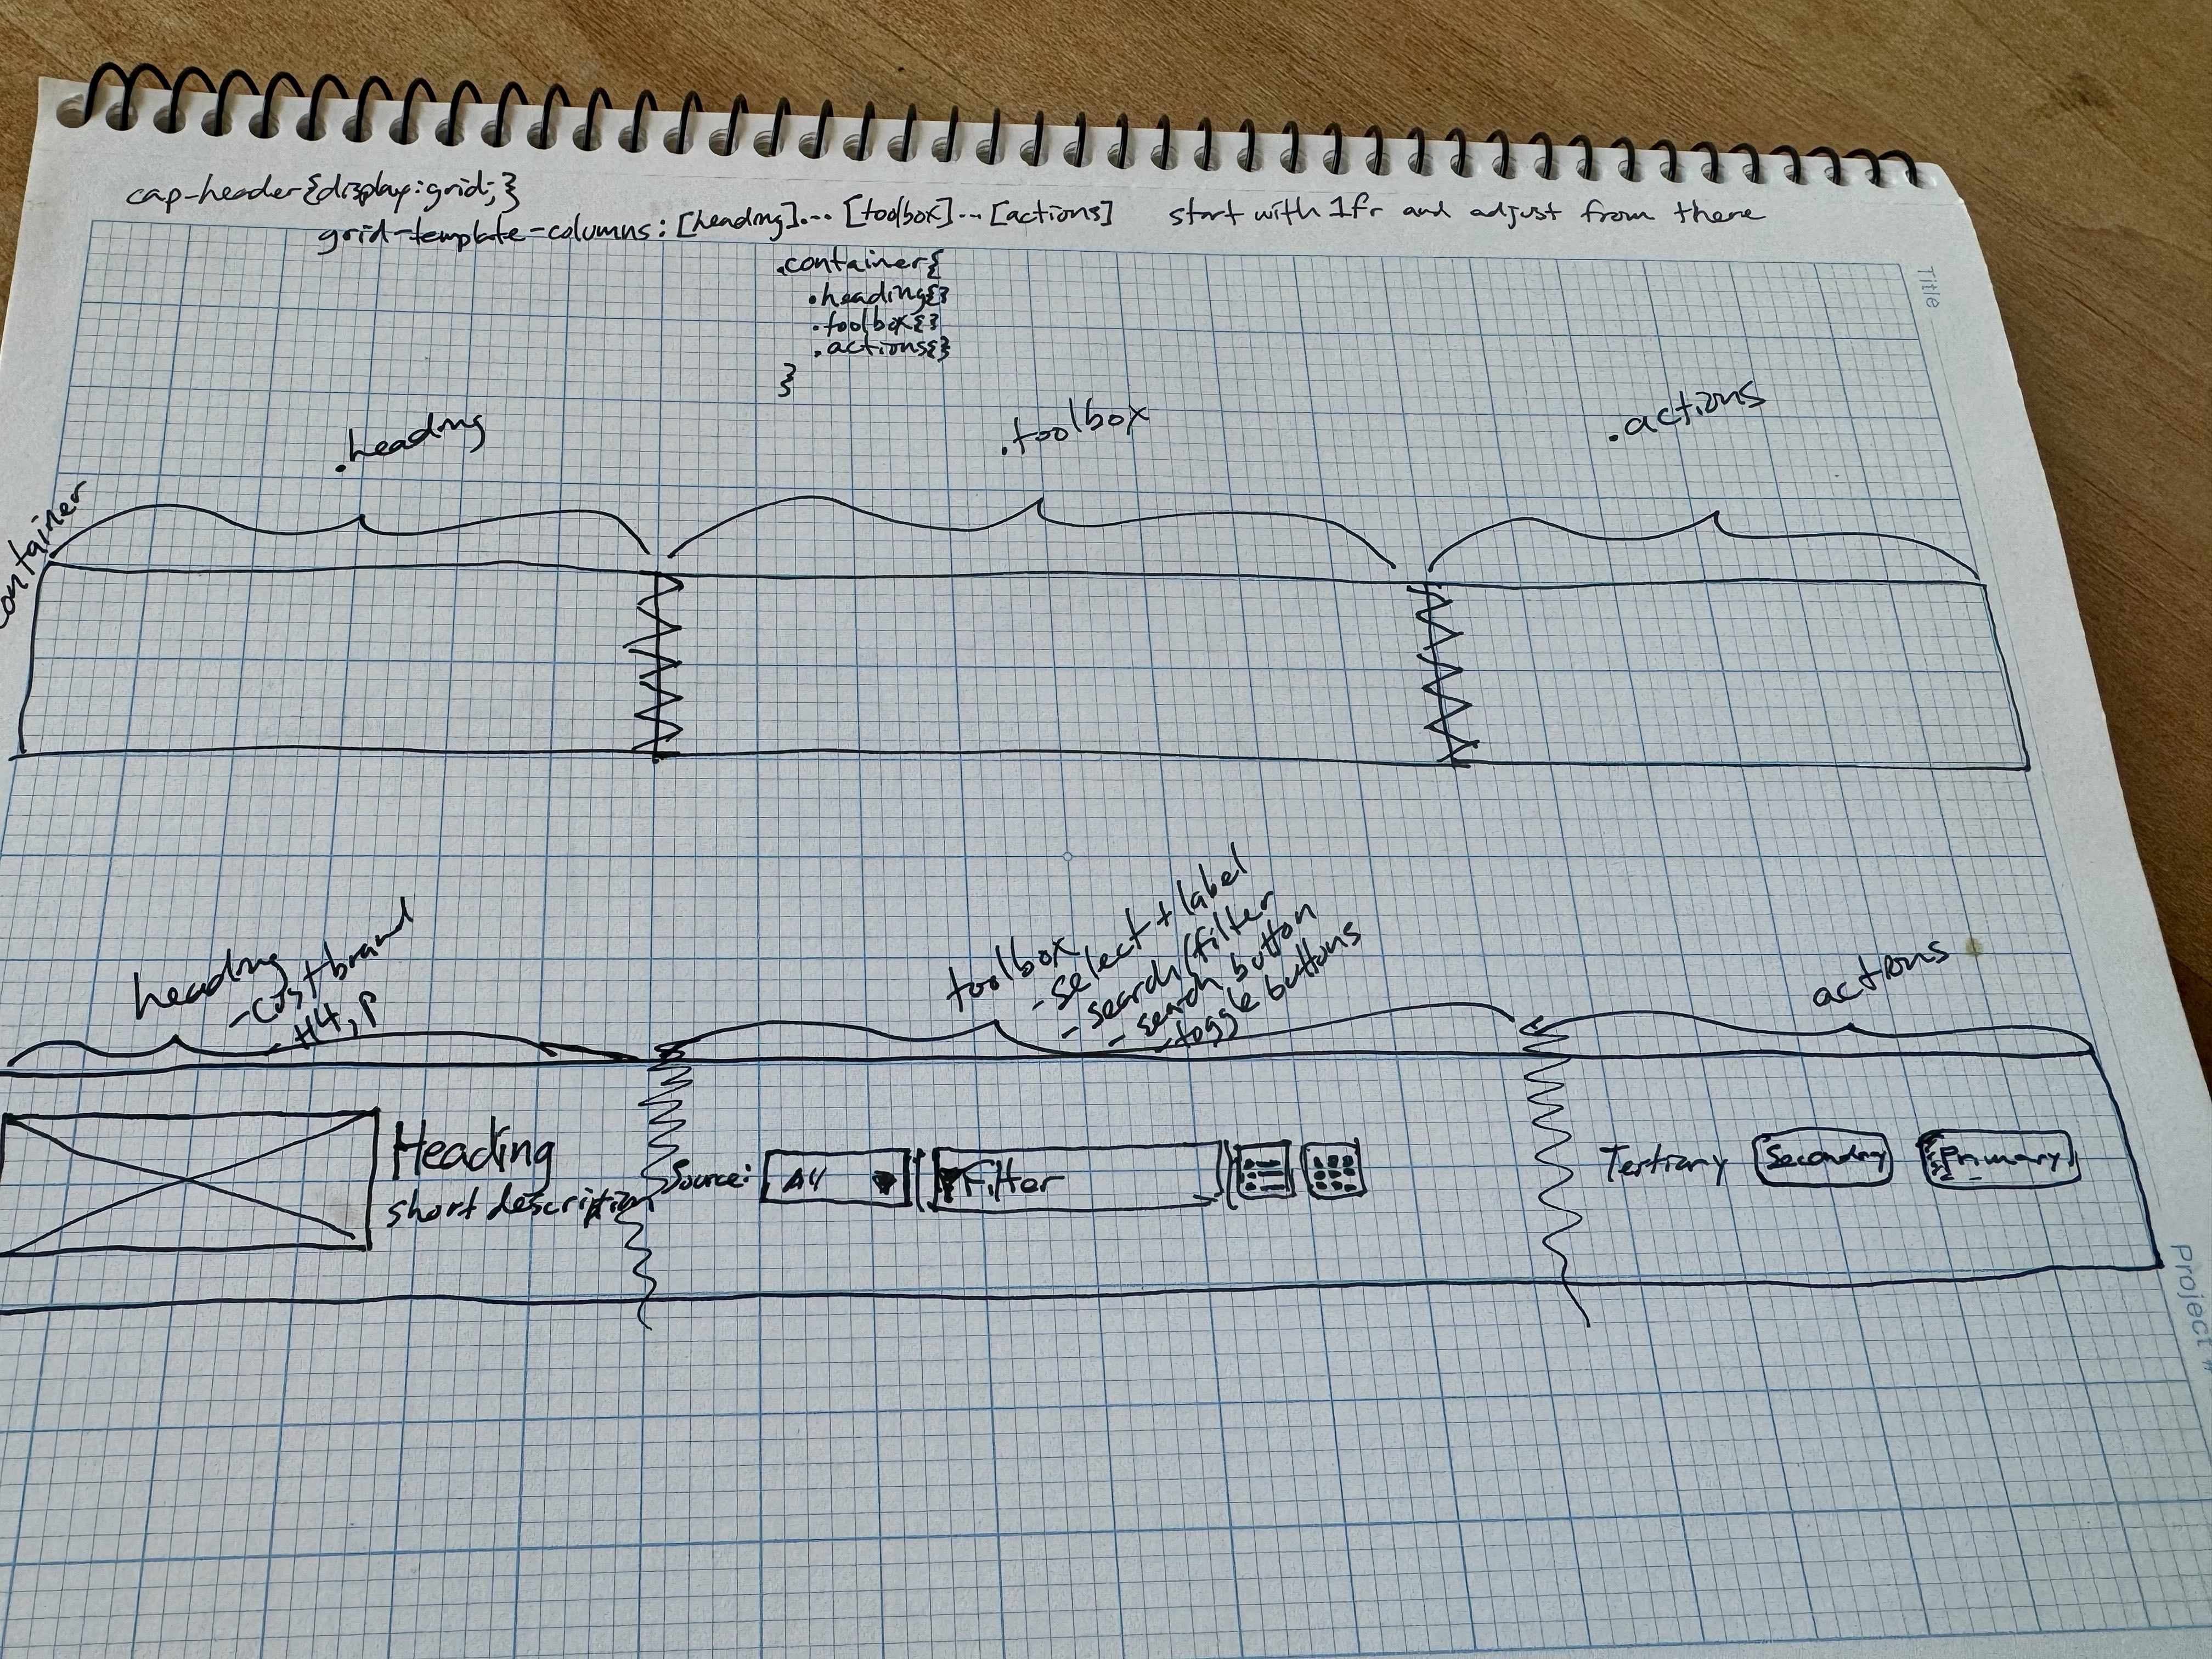 cap-header{display:grid;}
grid-template-columns: [heading]... [toolbox]... [actions] start with 1fr and adjust from there
.container{
.heading{}
.toolbox{}
.actions{}
}
Title
.heading
.toolbox
.actions
container
heading
- cust brand
- H4, P
toolbox
- select + label
- search/filter
- search button
- toggle buttons
actions
Heading
short description
Source: All Filter
Tertiary Secondary Primary
Project #